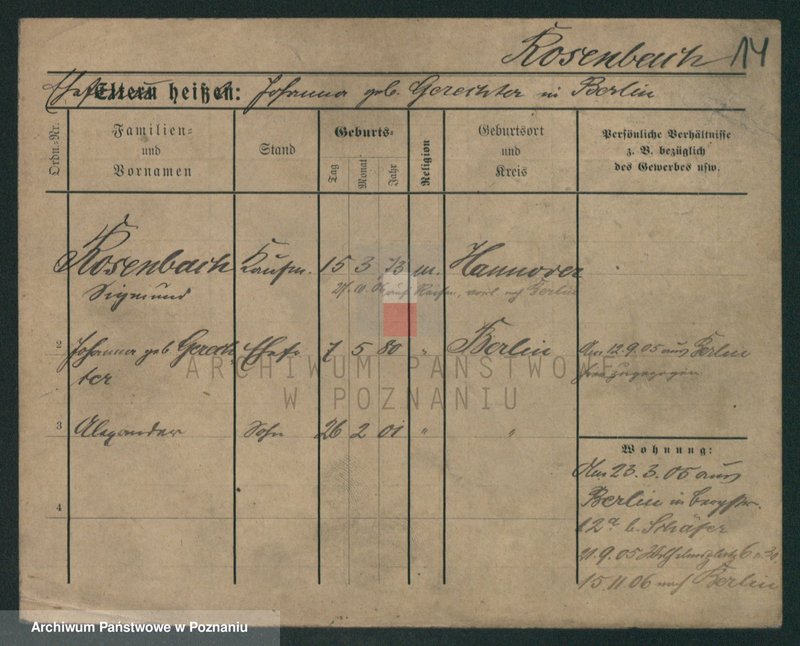 Rosenbach 14
Eltern heißen: Johanna geb. Gerechter in Berlin
Ordn.-Nr. Familien= und Vornamen Stand Geburts= Tag Monat Jahr Religion Geburtsort und Kreis Persönliche Verhältnisse z. B. bezüglich des Gewerbes usw.
Rosenbach Kaufm. 15 3 73 m. Hannover
Sigmund
auf Reisen, nach Berlin
2 Johanna geb. Gerech Ehefr. 7 5 80 " Berlin Am 12.9.05 aus Berlin
ter zugezogen
3 Alexander Sohn 26 2 01 " "
Wohnung:
Am 23.3.05 aus
Berlin in
4
12a b. Schäfer
21.9.05 Wilhelmsplatz 6
15.11.06 nach Berlin
ARCHIWUM PAŃSTWOWE
W POZNANIU
Archiwum Państwowe w Poznaniu